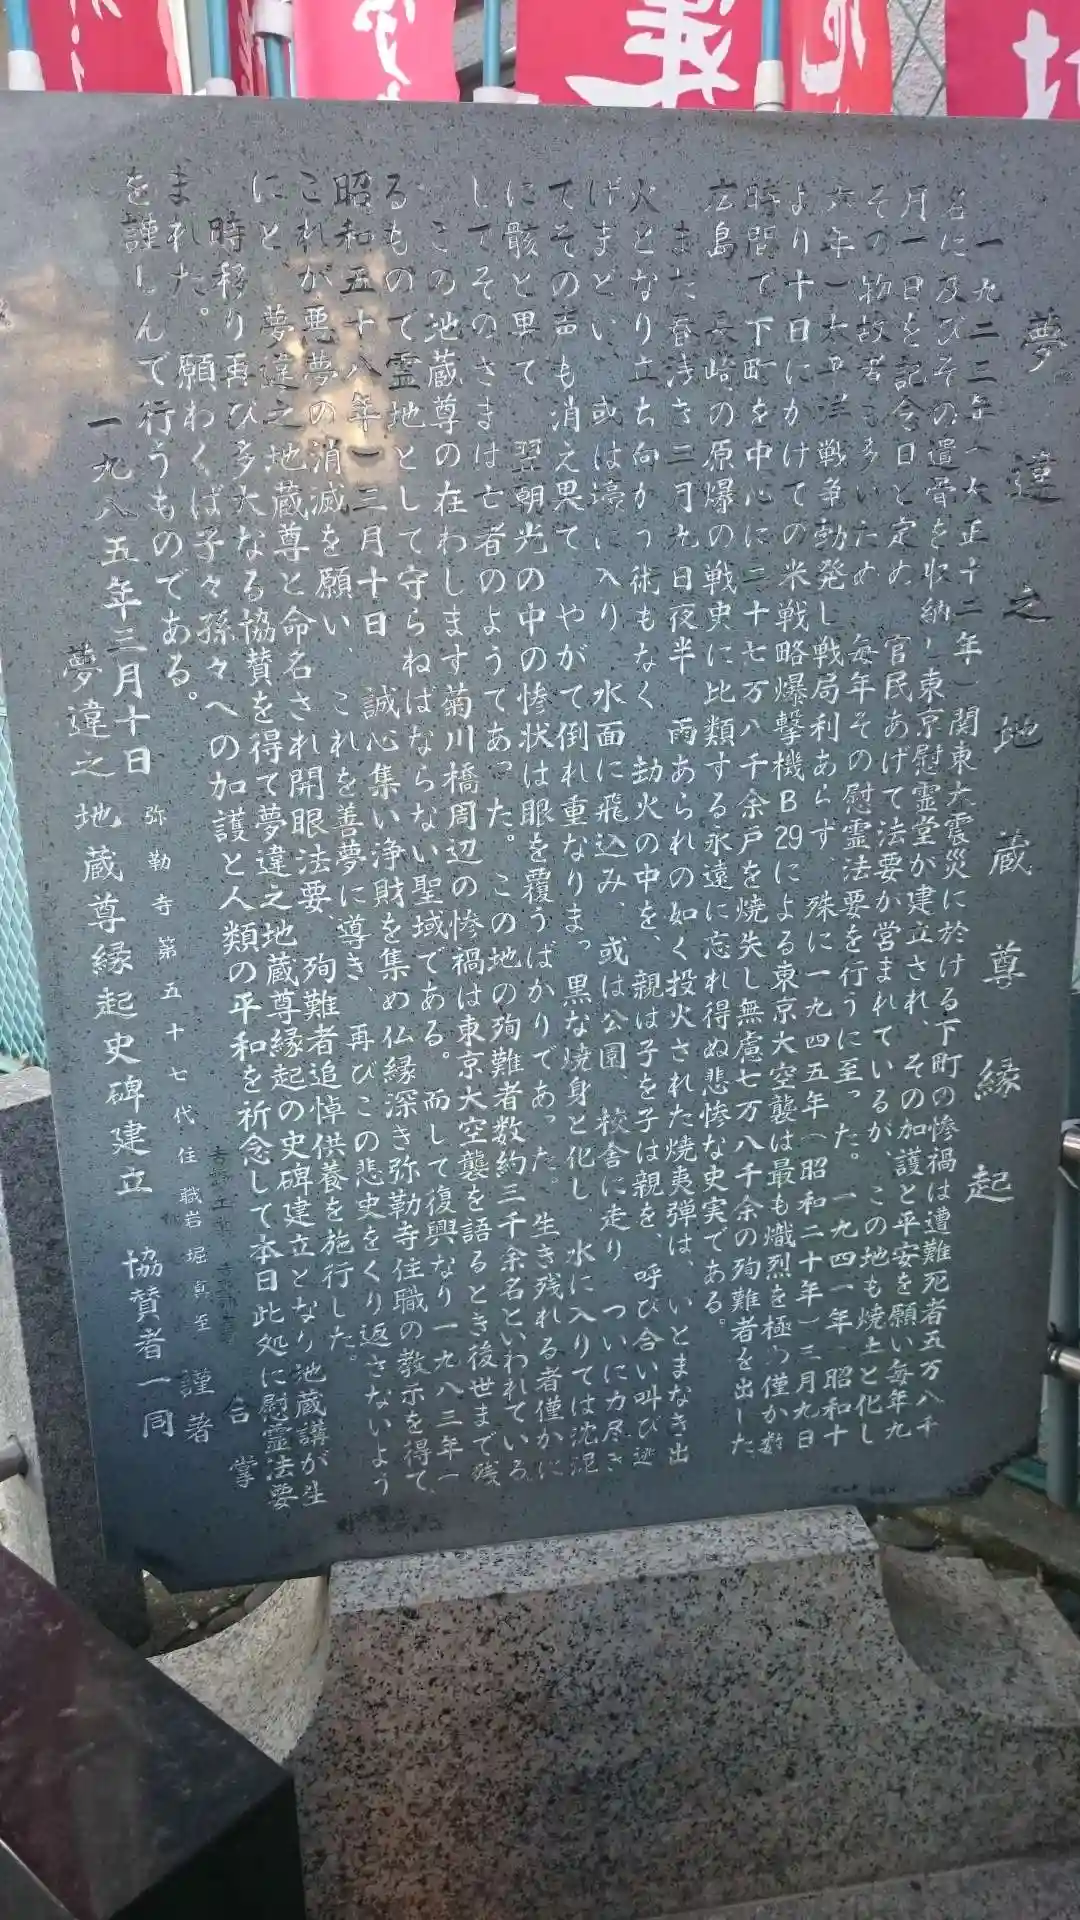 夢違之地蔵尊縁起
一九二三年(大正十二年)関東大震災に於ける下町の惨禍は遭難死者五万八千
名に及びその遺骨を収納し東京慰霊堂が建立され、その加護と平安を願い毎年九
月一日を記念日と定め 官民あげて法要が営まれているが、この地も焼土と化し
その物故者も多いため 毎年その慰霊法要を行うに至った。一九四一年(昭和十
六年)太平洋戦争勃発し戦局利あらず、殊に一九四五年(昭和二十年)三月九日
より十日にかけての米戦略爆撃機B29による東京大空襲は最も熾烈を極め僅か数
時間で下町を中心に二十七万八千余戸を焼失し無慮七万八千余の殉難者を出した
広島 長崎の原爆の戦史に比類する永遠に忘れ得ぬ悲惨な史実である。
まだ春浅き三月九日夜半 雨あられの如く投火された焼夷弾は、いとまなき出
火となり立ち向かう術もなく 劫火の中を、親は子を子は親を、呼び合い叫び逃
げまどい 或は壕に入り 水面に飛込み、或は公園 校舎に走り ついに力尽き
てその声も消え果て やがて倒れ重なりまっ黒な焼身と化し 水に入りては沈泥
に骸と果て 翌朝光の中の惨状は眼を覆うばかりであった。生き残れる者僅かに
してそのさまは亡者のようであった。この地の殉難者数約三千余名といわれている
この地蔵尊の在わします菊川橋周辺の惨禍は東京大空襲を語るとき後世まで残
るもので霊地として守らねばならない聖域である。而して復興なり一九八三年(
昭和五十八年)三月十日 誠心集い浄財を集め仏縁深き弥勒寺住職の教示を得て
これが悪夢の消滅を願い、これを善夢に導き、再びこの悲史をくり返さないよう
にと 夢違之地蔵尊と命名され開眼法要、殉難者追悼供養を施行した。
時移り再び多大なる協賛を得て夢違之地蔵尊縁起の史碑建立となり地蔵講が生
まれた。願わくば子々孫々への加護と人類の平和を祈念して本日此処に慰霊法要
を謹しんで行うものである。
合掌
一九八五年三月十日 弥勒寺第五十七代住職岩堀真至 謹著
夢違之地蔵尊縁起史碑建立 協賛者一同